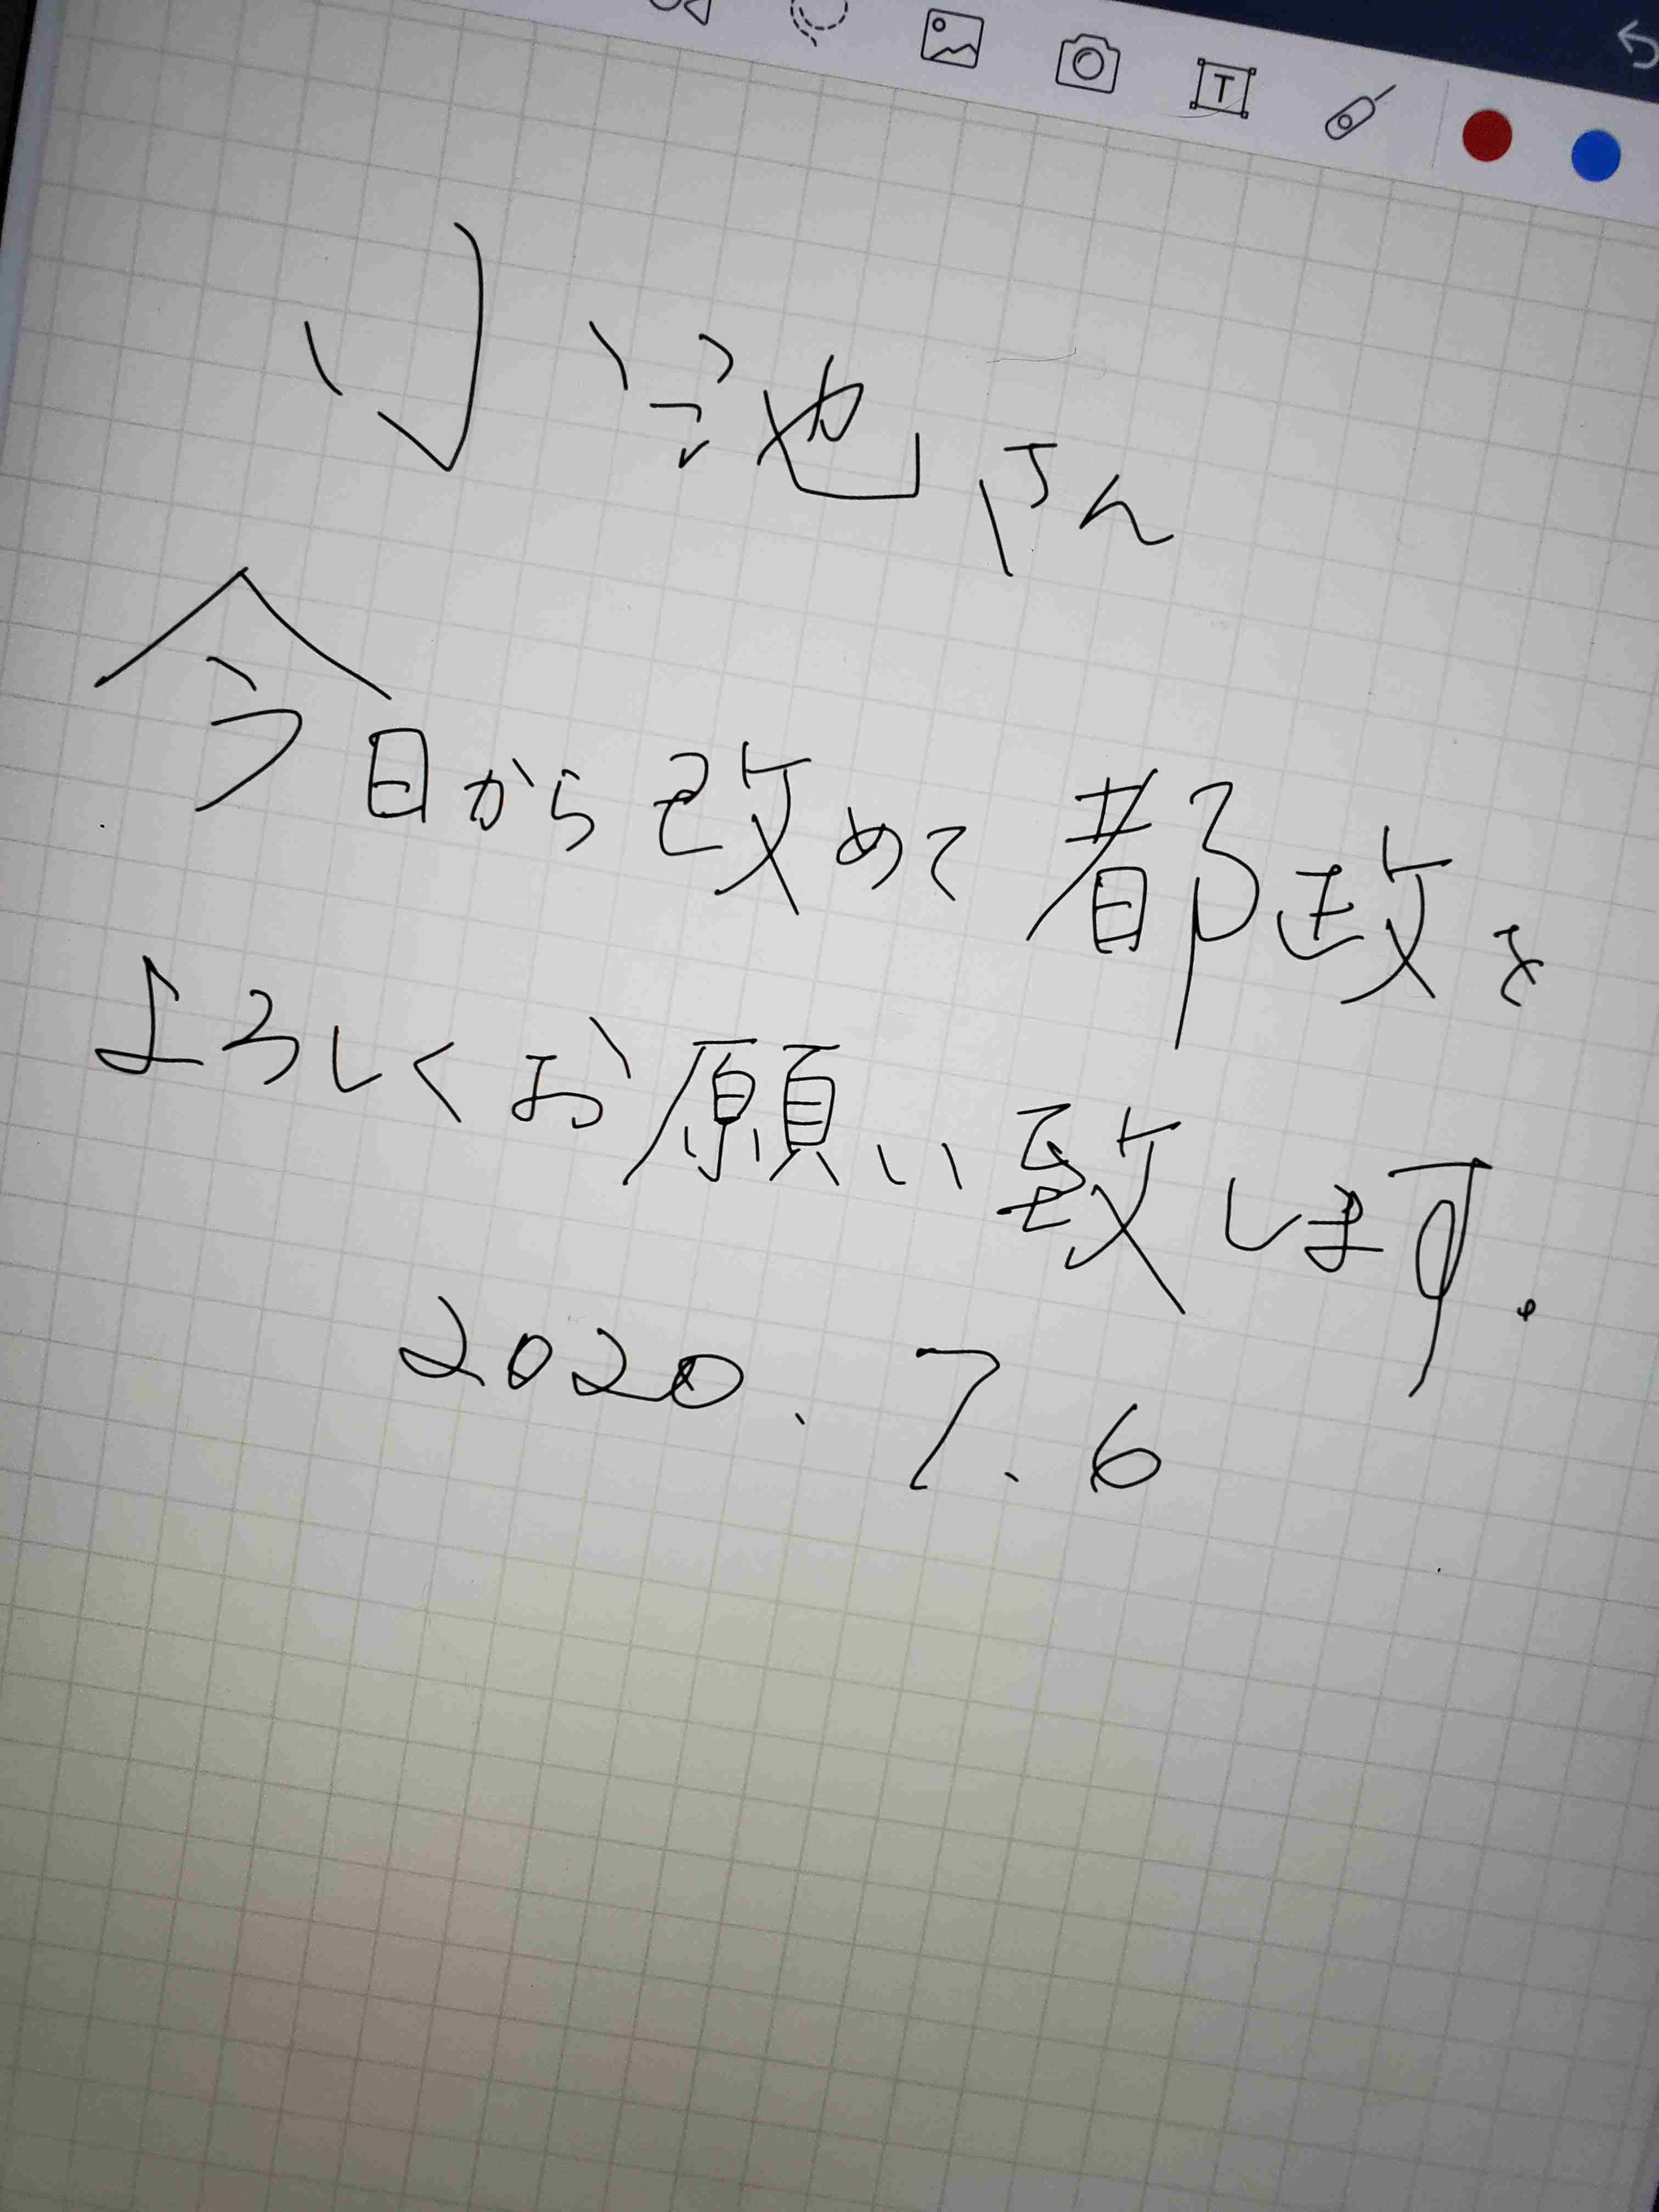 小池さん
今日から改めて都政を
よろしくお願い致します.
2020.7.6